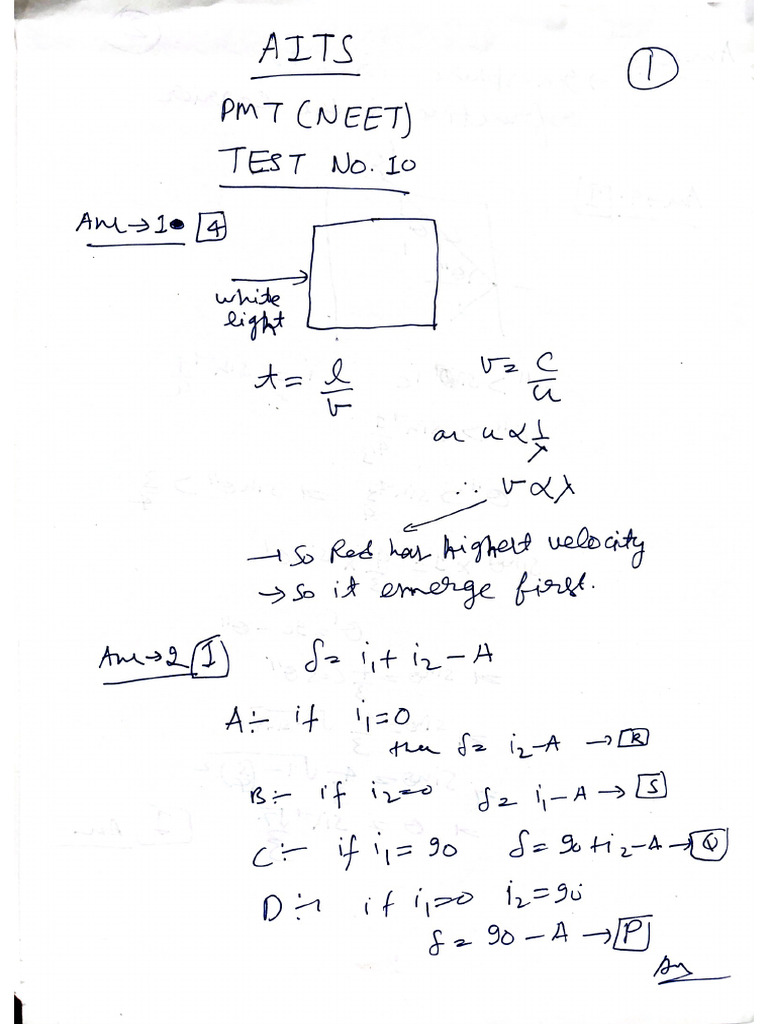 AITS
1
PMT (NEET)
TEST No. 10
Ans→1. 4
white
light
t = l/v
v = c/u
or u ∝ 1/λ
∴ v ∝ λ
→ So Red has highest velocity
→ So it emerge first.
Ans→2 I
δ = i₁ + i₂ − A
A:- if i₁=0
then δ = i₂−A → R
B:- if i₂=0 δ = i₁−A → S
C:- if i₁=90 δ = 90+i₂−A → Q
D:- if i₁=0 i₂=90
δ = 90−A → P
Ans